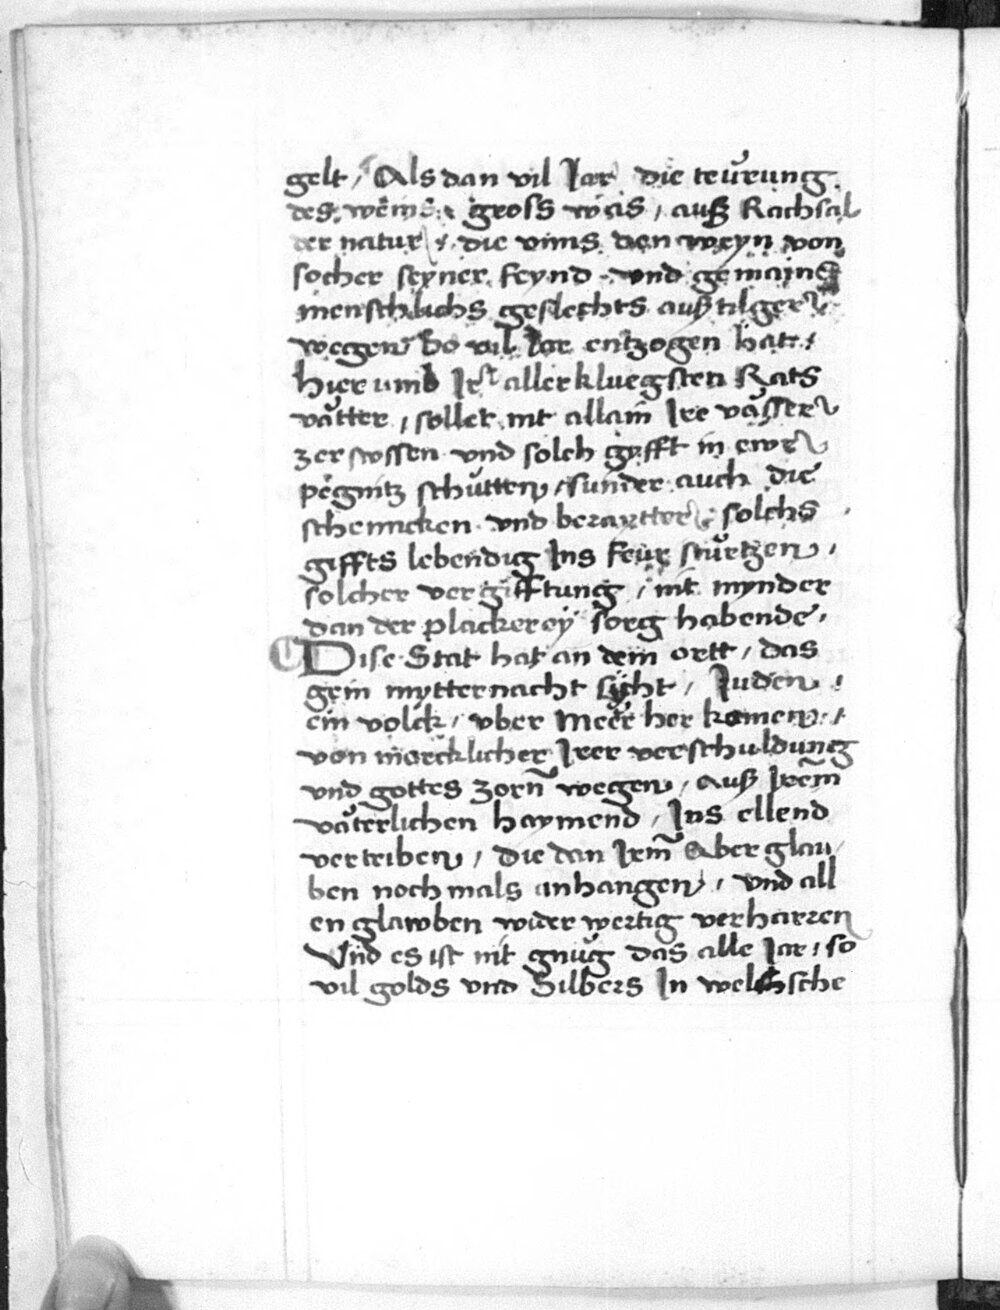 gelt / Als dan vil Jar die teűrung
des weins gross was / auß Rachsal
der natur / die vnns den weyn von
socher seyner feynd und gemains
menschlichs geslechts außtilger
wegen So vil Jar entzogen hat /
hierumb Jr allerkluegsten Rats
våtter / sollet nit allain Jre våsser
zerstossen vnd solch gyfft in ewr
pegnitz schűtten / sunder auch die
schenncken vnd beraytter solchs
giffts lebendig Jns feűr stűrtzen /
solcher vergifftung / nit mynder
dan der plackerey sorg habende /
Dise Stat hat an dem ortt / das
gein mytternacht sicht / Juden /
ein volck / vber meer her komen /
von mercklicher Jrer verschuldung
vnd gottes zorñ wegen / auß Jrem̃
våterlichen haymend / Jns ellend
vertriben / die dan Jrm̃ Aberglau
ben nochmals anhangen / vnd all
en glawben widerwertig verharren
Vnd es ist nit gnűg das alle Jar / so
vil golds vnd Silbers Jn welhsche